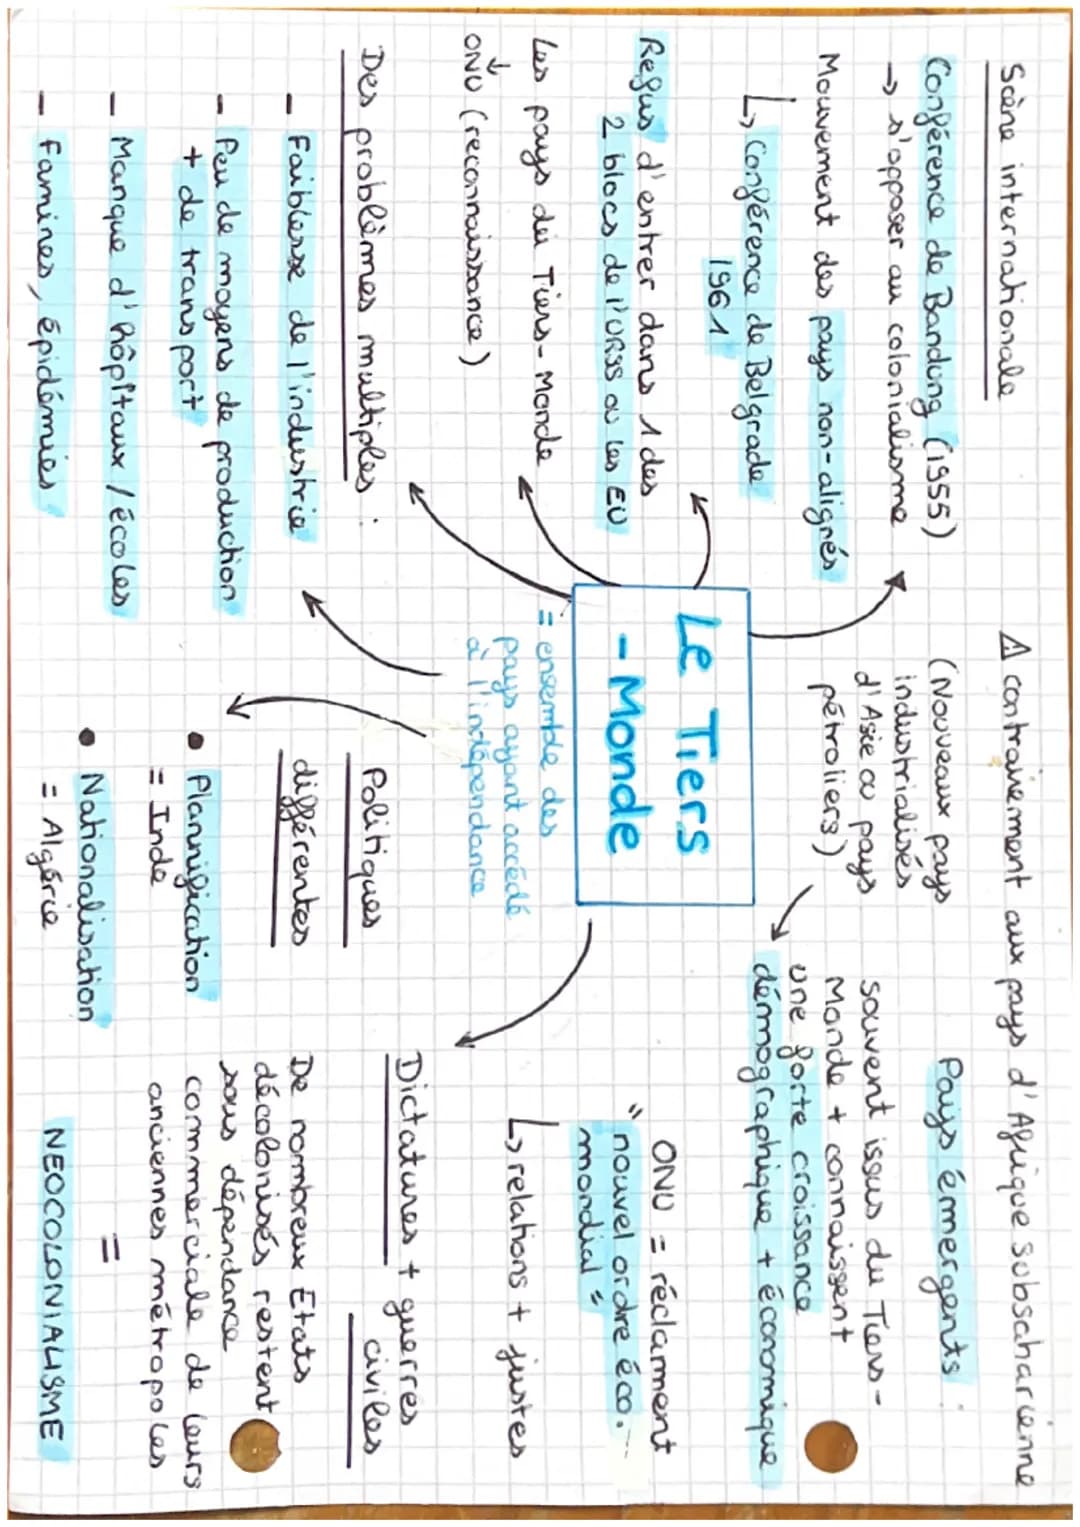 Scène internationale
Conférence de Bandung (1955)
→ s'opposer au colonialisme
Mouvement des pays non-alignés
↳ Conférence de Belgrade
1961
Refus d'entrer dans 1 des
2 blocs de l'URSS ou les EU
Les pays du Tiers-Monde
↓
ONU (reconnaissance)
Des problèmes multiples :
- Faiblesse de l'industrie
- Peu de moyens de production
+ de transport
- Manque d'hôpitaux / écoles
- Famines, épidémies
⚠ contrairement aux pays d'Afrique subsaharienne
(Nouveaux pays
industrialisés
d'Asie ou pays
pétroliers)
Le Tiers
- Monde
= ensemble des
pays ayant accédé
à l'indépendance
Politiques
différentes
• Plannification
= Inde
• Nationalisation
= Algérie
Pays émergents :
souvent issus du Tiers-
Monde + connaissent
une forte croissance
démographique + économique
ONU = réclament
"nouvel ordre éco.
mondial"
↳ relations + justes
Dictatures + guerres
civiles
De nombreux Etats
décolonisés restent
sous dépendance
commerciale de leurs
anciennes métropoles
=
NEOCOLONIALISME